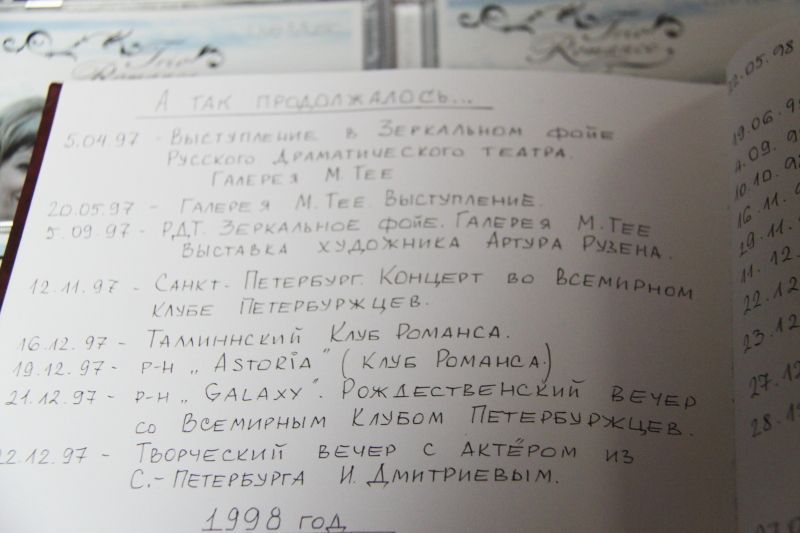 Live Music
Trio
Romance
Trio
Romance
А ТАК ПРОДОЛЖАЛОСЬ...
5.04.97 - ВЫСТУПЛЕНИЕ В ЗЕРКАЛЬНОМ ФОЙЕ
РУССКОГО ДРАМАТИЧЕСКОГО ТЕАТРА.
ГАЛЕРЕЯ М. ТЕЕ
20.05.97 - ГАЛЕРЕЯ М. ТЕЕ. ВЫСТУПЛЕНИЕ.
5.09.97 - РДТ. ЗЕРКАЛЬНОЕ ФОЙЕ. ГАЛЕРЕЯ М. ТЕЕ
ВЫСТАВКА ХУДОЖНИКА АРТУРА РУЗЕНА.
12.11.97 - САНКТ-ПЕТЕРБУРГ. КОНЦЕРТ ВО ВСЕМИРНОМ
КЛУБЕ ПЕТЕРБУРЖЦЕВ.
16.12.97 - ТАЛИННСКИЙ КЛУБ РОМАНСА.
19.12.97 - Р-Н „ASTORIA” (КЛУБ РОМАНСА)
21.12.97 - Р-Н „GALAXY”. РОЖДЕСТВЕНСКИЙ ВЕЧЕР
СО ВСЕМИРНЫМ КЛУБОМ ПЕТЕРБУРЖЦЕВ.
22.12.97 - ТВОРЧЕСКИЙ ВЕЧЕР С АКТЁРОМ ИЗ
С.-ПЕТЕРБУРГА И. ДМИТРИЕВЫМ.
1998 ГОД
22.05.98
19.06.98
4.09.9
10.10.9
16.11.9
29.11.
11.12.
22.12
23.12
27.12
28.1